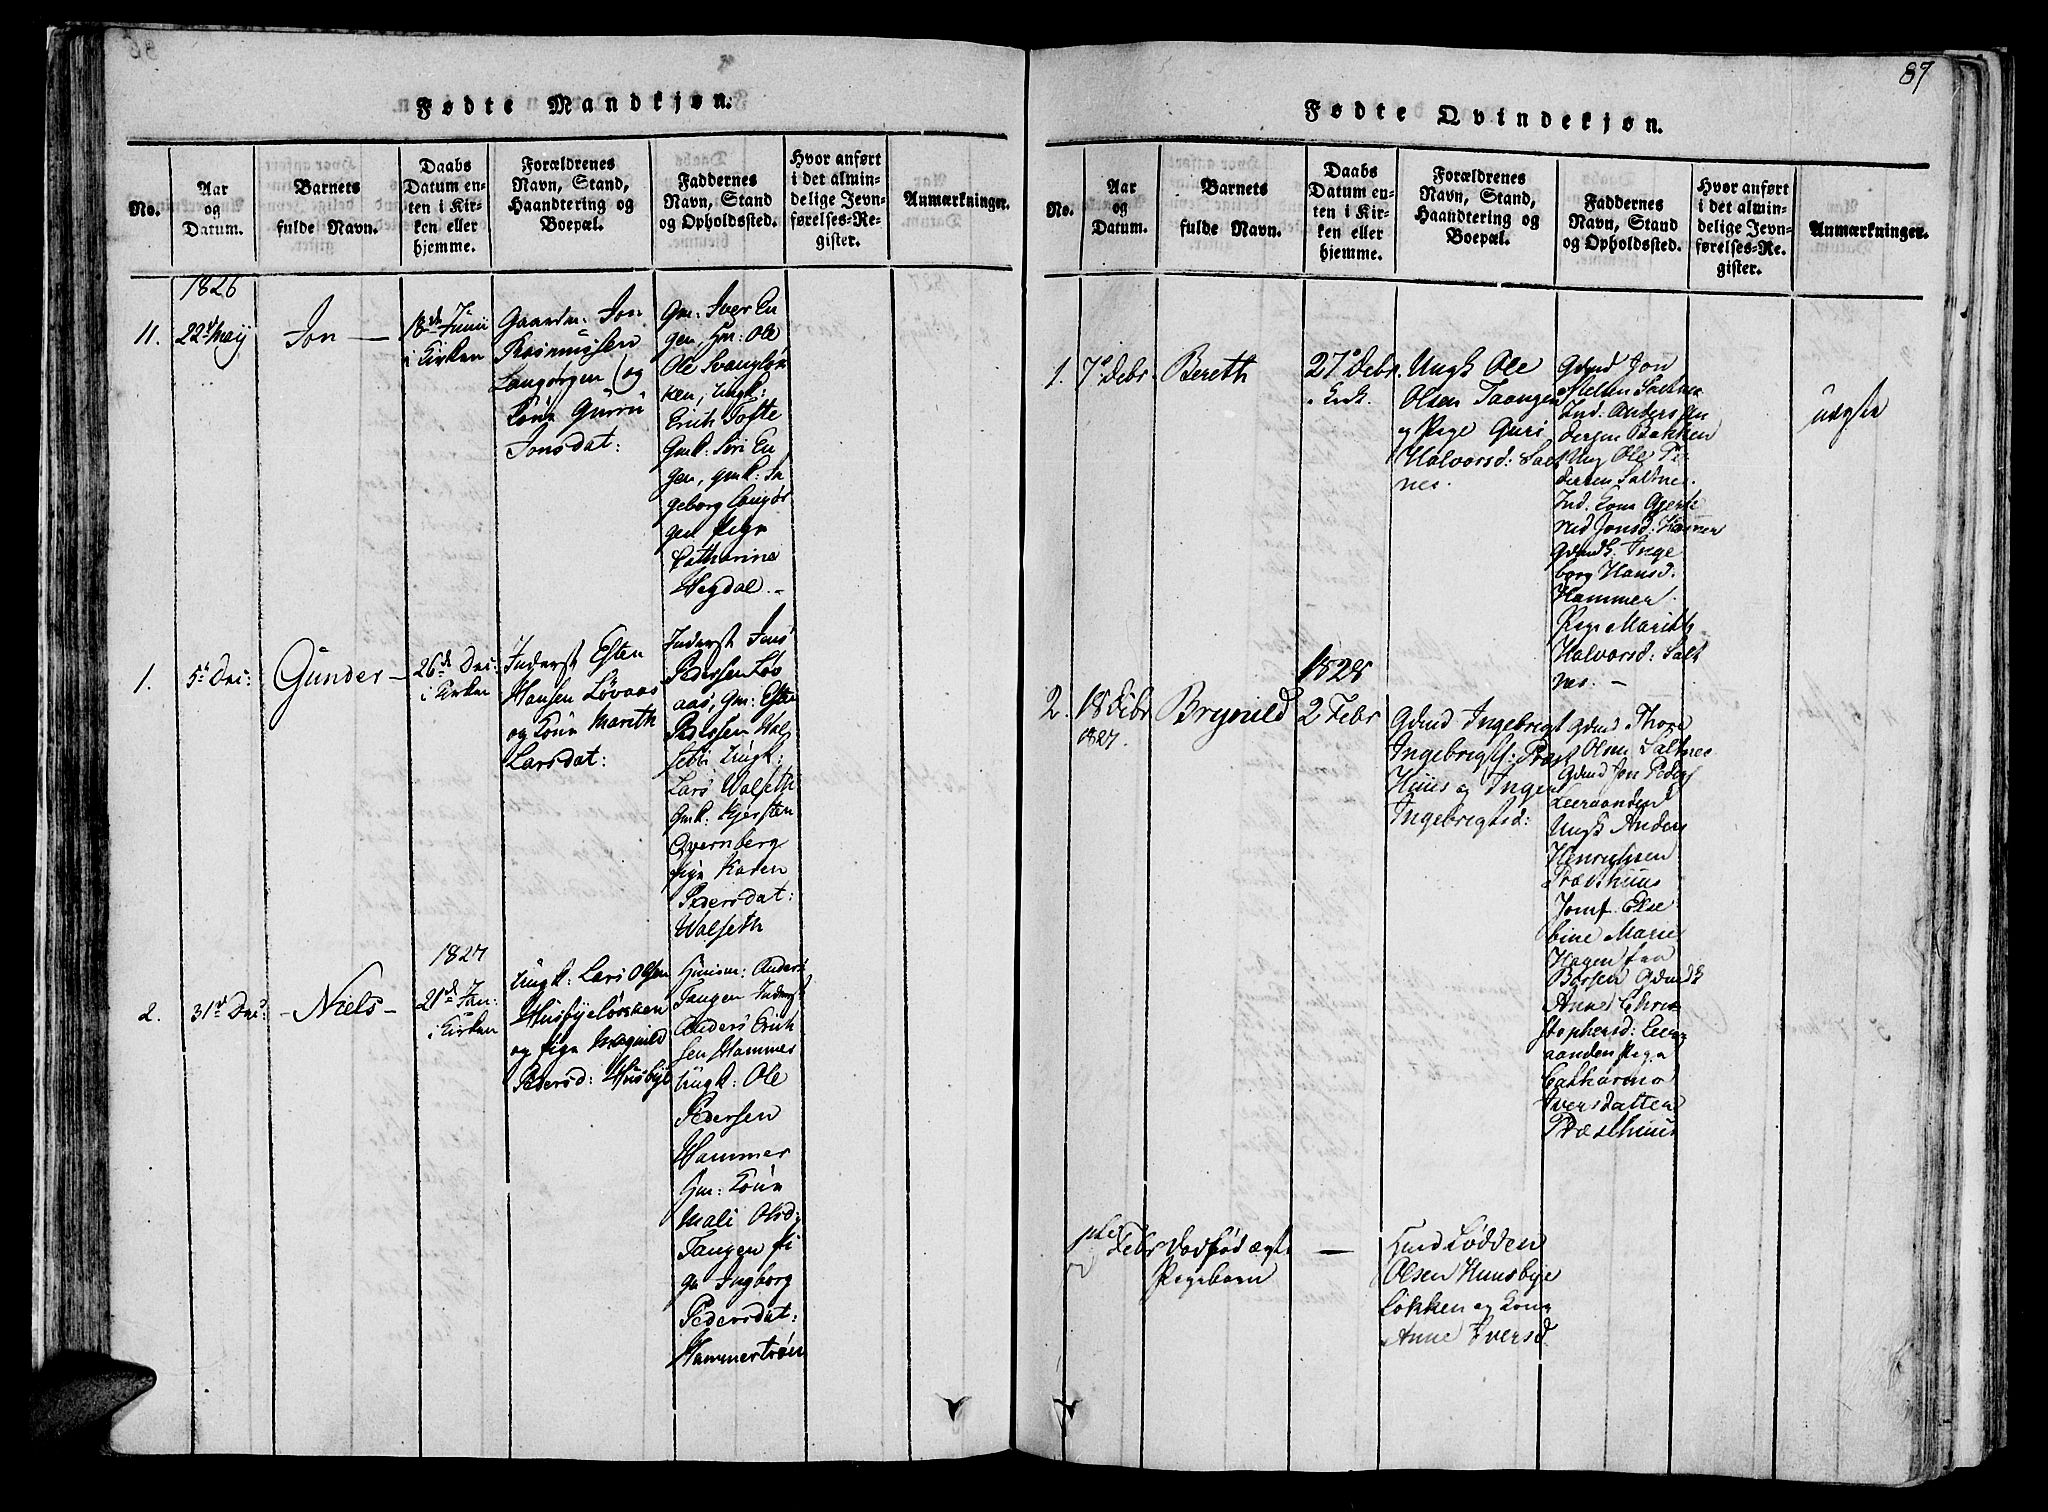 Fødte Mandkjøn.
No.
Aar
og
Datum.
Barnets
fulde Navn.
Daabs
Datum en-
ten i Kir-
ken eller
hjemme.
Forældrenes
Navn, Stand,
Haandtering og
Boepæl.
Faddernes
Navn, Stand
og Opholdssted.
Hvor anført
i det almin-
delige Jevn-
førelses-Re-
gister.
Anmærkninger.
1826
11.
22d May
Jon —
18de Junii
i Kirken
Gaardm: Jon
Rasmussen
Langørgen (og
Kone Gurru
Jonsdat:
Gm: Iver En
gen, Hm: Ole
Ole Svangløk
ken, Ungk:
Erich Tofte
Gmk: Siri En
gen, gmk: In
geborg Langør
gen Pige
Catharina
Hegdal. –
1.
5te Dec:
Gunder –
26de Dec:
i Kirken
Inderst Esten
Hansen Løvaas
og Kone Marith
Larsdat:
Inderst Jens
Pedersen Løv
aas, Gm: Esten
Pedersen Wal
seth: Ungk:
Lars Walseth
Gmk: Kjersten
Qvernberg
Pige Karen
Pedersdat:
Walseth
2.
31te Dec:
– Niels –
1827
21de Jan:
i Kirken
Ungk: Lars Olsen
Husbyeløkken
og Pige Magnild
Pedersd: Husbye
Huusm: Anders
Tangen Inderst
Anders Erich
sen Hammer
Ungk: Ole
Pedersen
Hammer
Hm: Kone
Mali Olsd:
Tangen Pi
ge Ingborg
Pedersdat:
Hammertrøen
87
Fødte Qvindekjøn.
No.
Aar
og
Datum.
Barnets
fulde Navn.
Daabs
Datum en-
ten i Kir-
ken eller
hjemme.
Forældrenes
Navn, Stand,
Haandtering og
Boepæl.
Faddernes
Navn, Stand
og Opholdssted.
Hvor anført
i det almin-
delige Jevn-
førelses-Re-
gister.
Anmærkninger.
1.
7de Debr.
Bereth
27de Debr.
i Kirk.
Ungk Ole
Olsen Taangen
og Pige Guri
Halvorsd: Salt
nes.
Gdmd Jon
Saltnes
Ind. Anders An
dersen Bakken
Ung Ole Pe
dersen Saltnes.
Ind. Kone Gjert
rud Jonsd. Hammer
Gdmdk: Inge
borg Hansd.
Hammer.
Pige Marith
Halvorsd: Salt
nes. –
uægte
2.
18 Debr
1827.
Brynild
1828
2 Febr
Gdmd Ingebrigt
Ingebrigts: Præst
Huus og Inger
Ingebrigtsd:
Gdmd Thore
Olsen Saltnes
Gdmd Jon Peders
Leeraanden
Ungk Anders
Henrichsen
Præsthuus
Jomf. Else
bine Marie
Hagen fra
Børsen Gdmdk
Anne Chris
stophersd: Leer
aanden Pige
Catharina
Iversdatter
Præsthuus
Febr
Dødfød ægte
Pigebarn
—
Hmd Lødden
Olsen Huusbye
Løkken og Kone
Anne Iversd